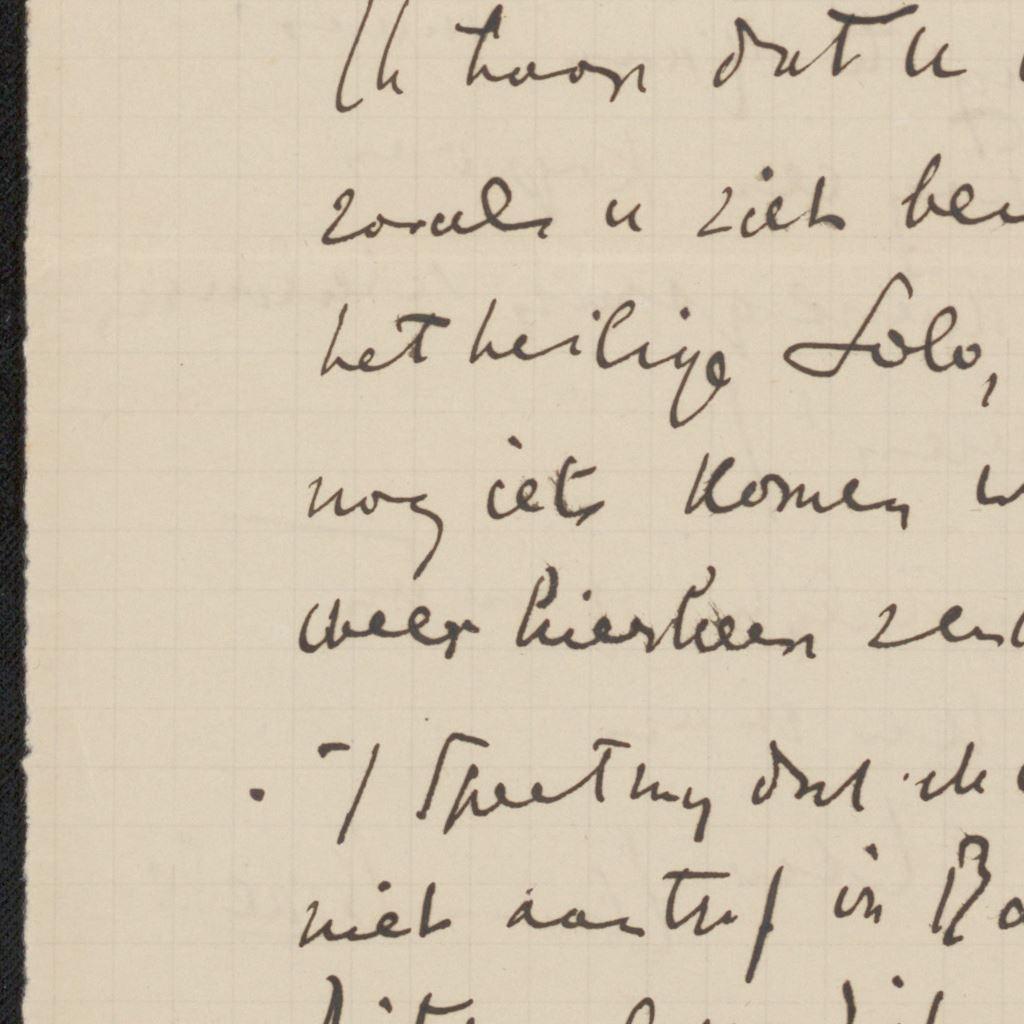 Ik hoop dat u
zooals u ziet
het heilige Solo,
nog iets komen
weer hierheen
't Speet my dat ik
niet aantref in